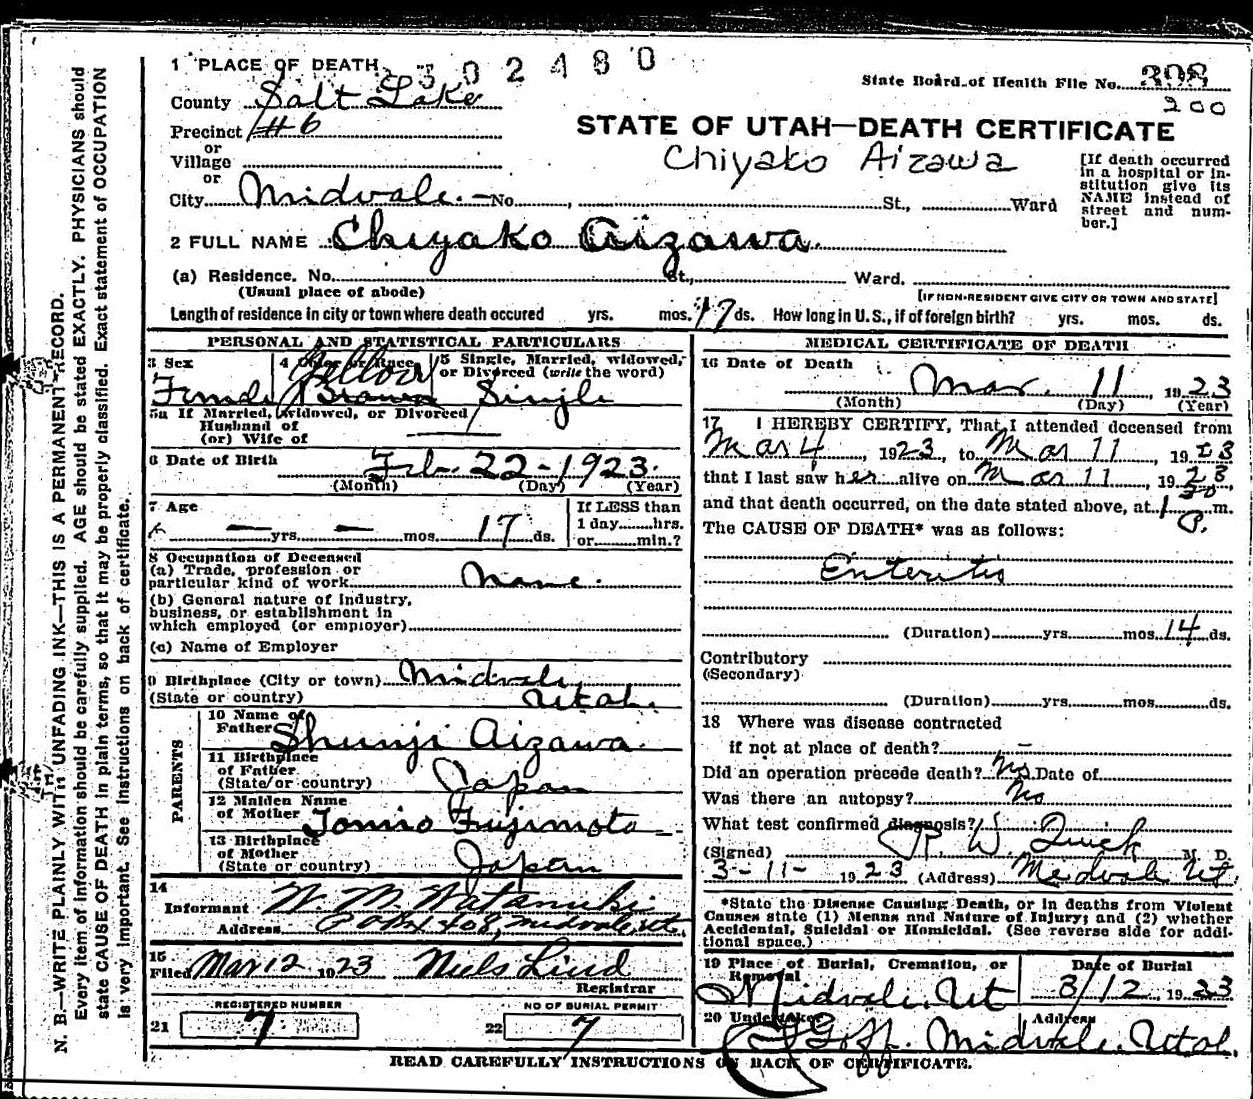 1 PLACE OF DEATH 302480
State Board of Health File No. 398
200
County Salt Lake
Precinct #6
or
Village
or
STATE OF UTAH—DEATH CERTIFICATE
Chiyako Aizawa
[If death occurred in a hospital or institution give its NAME instead of street and number.]
City Midvale.— No. , St., Ward
2 FULL NAME Chiyako Aizawa.
(a) Residence. No. St., Ward.
(Usual place of abode) [IF NON-RESIDENT GIVE CITY OR TOWN AND STATE]
Length of residence in city or town where death occured yrs. mos. 17 ds. How long in U. S., if of foreign birth? yrs. mos. ds.
PERSONAL AND STATISTICAL PARTICULARS
3 Sex 4 Color or Race 5 Single, Married, widowed, or Divorced (write the word)
Yellow
Female Brown Single
5a If Married, widowed, or Divorced
Husband of
(or) Wife of
6 Date of Birth Feb. 22-1923.
(Month) (Day) (Year)
7 Age If LESS than
— yrs. — mos. 17 ds. 1 day hrs.
or min.?
8 Occupation of Deceased
(a) Trade, profession or
particular kind of work None.
(b) General nature of industry,
business, or establishment in
which employed (or employer)
(c) Name of Employer
9 Birthplace (City or town) Midvale
(State or country) Utah.
PARENTS
10 Name of
Father Shunji Aizawa.
11 Birthplace
of Father
(State or country) Japan
12 Maiden Name
of Mother Tomio Fujimoto
13 Birthplace
of Mother
(State or country) Japan
14
Informant W. M. Watanuki
Address P O Box 408, Midvale, Ut.
15
Filed Mar 12 1923 Niels Lind
Registrar
REGISTERED NUMBER NO OF BURIAL PERMIT
21 7 22 7
MEDICAL CERTIFICATE OF DEATH
16 Date of Death
Mar. 11 1923
(Month) (Day) (Year)
17 I HEREBY CERTIFY, That I attended deceased from
Mar 4, 1923, to Mar 11, 1923
that I last saw her alive on Mar 11, 1923,
and that death occurred, on the date stated above, at 1 30 P. m.
The CAUSE OF DEATH* was as follows:
Enteritis
(Duration) yrs. mos. 14 ds.
Contributory
(Secondary)
(Duration) yrs. mos. ds.
18 Where was disease contracted
if not at place of death? —
Did an operation precede death? No Date of
Was there an autopsy? No
What test confirmed diagnosis?
(Signed) W. Quick M. D.
3-11- 1923 (Address) Midvale Ut.
*State the Disease Causing Death, or in deaths from Violent
Causes state (1) Means and Nature of Injury; and (2) whether
Accidental, Suicidal or Homicidal. (See reverse side for addi-
tional space.)
19 Place of Burial, Cremation, or Removal Date of Burial
Midvale, Ut 3/12, 1923
20 Undertaker Address
Goff. Midvale. Utah.
READ CAREFULLY INSTRUCTIONS ON BACK OF CERTIFICATE.
N. B.—WRITE PLAINLY WITH UNFADING INK—THIS IS A PERMANENT RECORD.
Every item of information should be carefully supplied. AGE should be stated EXACTLY. PHYSICIANS should
state CAUSE OF DEATH in plain terms, so that it may be properly classified. Exact statement of OCCUPATION
is very important. See instructions on back of certificate.